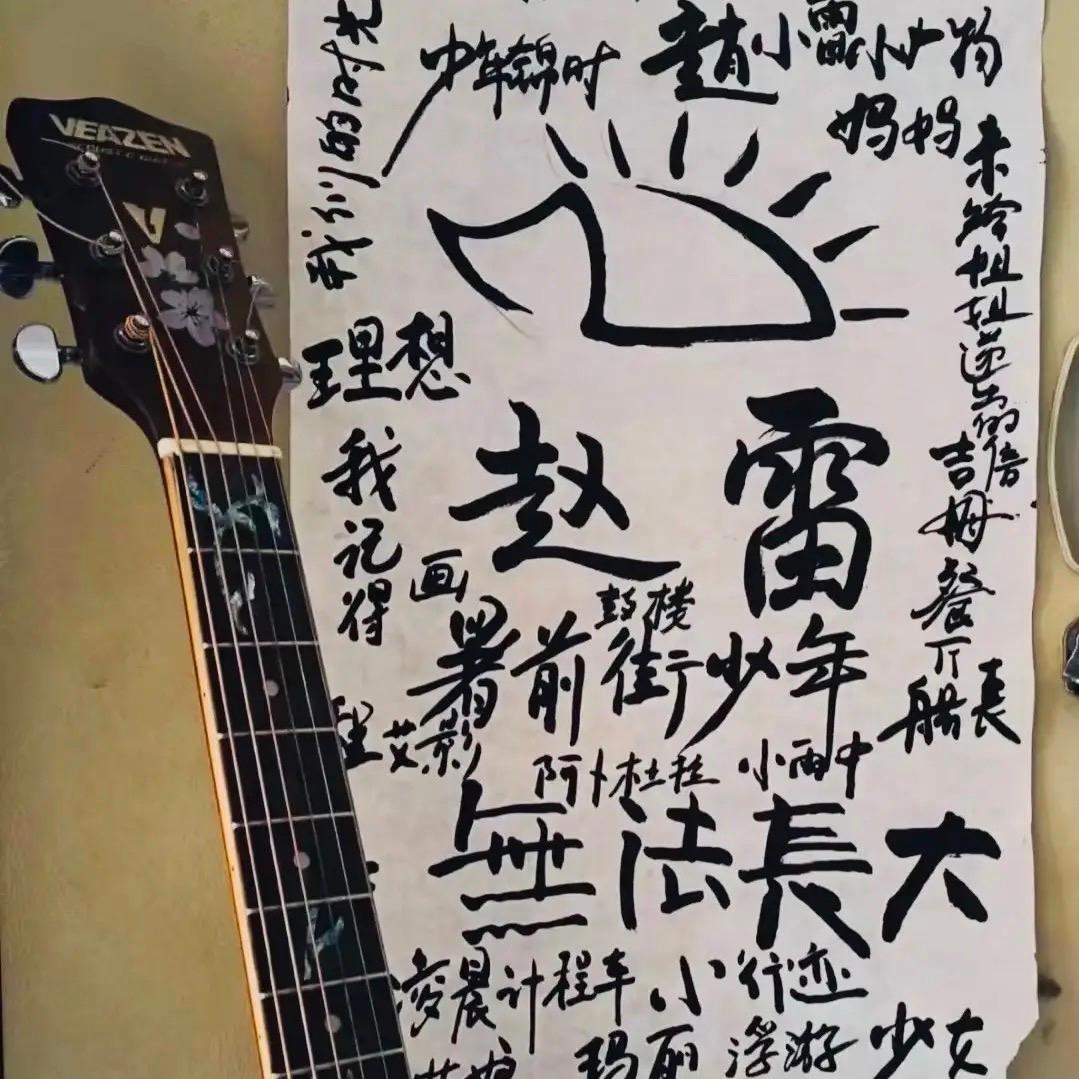 VEAZEN
我们的时光
少年锦时
趙小雷
小人物
妈妈
未给姐姐递出的信
理想
赵雷
我记得
吉姆餐厅
画
鼓楼
署前街少年
船長
程艾影
阿卜杜拉
小雨中
無法長大
凌晨计程车
小行迹
玛丽
浮游
少女